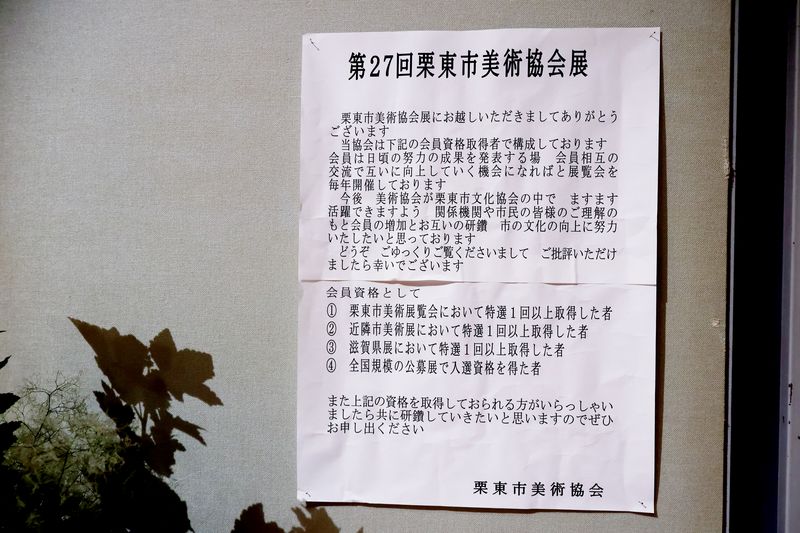 第27回栗東市美術協会展
栗東市美術協会展にお越しいただきましてありがとう
ございます
当協会は下記の会員資格取得者で構成しております
会員は日頃の努力の成果を発表する場　会員相互の
交流で互いに向上していく機会になればと展覧会を
毎年開催しております
今後　美術協会が栗東市文化協会の中で　ますます
活躍できますよう　関係機関や市民の皆様のご理解の
もと会員の増加とお互いの研鑽　市の文化の向上に努力
いたしたいと思っております
どうぞ　ごゆっくりご覧くださいまして　ご批評いただけ
ましたら幸いでございます
会員資格として
①　栗東市美術展覧会において特選１回以上取得した者
②　近隣市美術展において特選１回以上取得した者
③　滋賀県展において特選１回以上取得した者
④　全国規模の公募展で入選資格を得た者
また上記の資格を取得しておられる方がいらっしゃい
ましたら共に研鑽していきたいと思いますのでぜひ
お申し出ください
栗東市美術協会